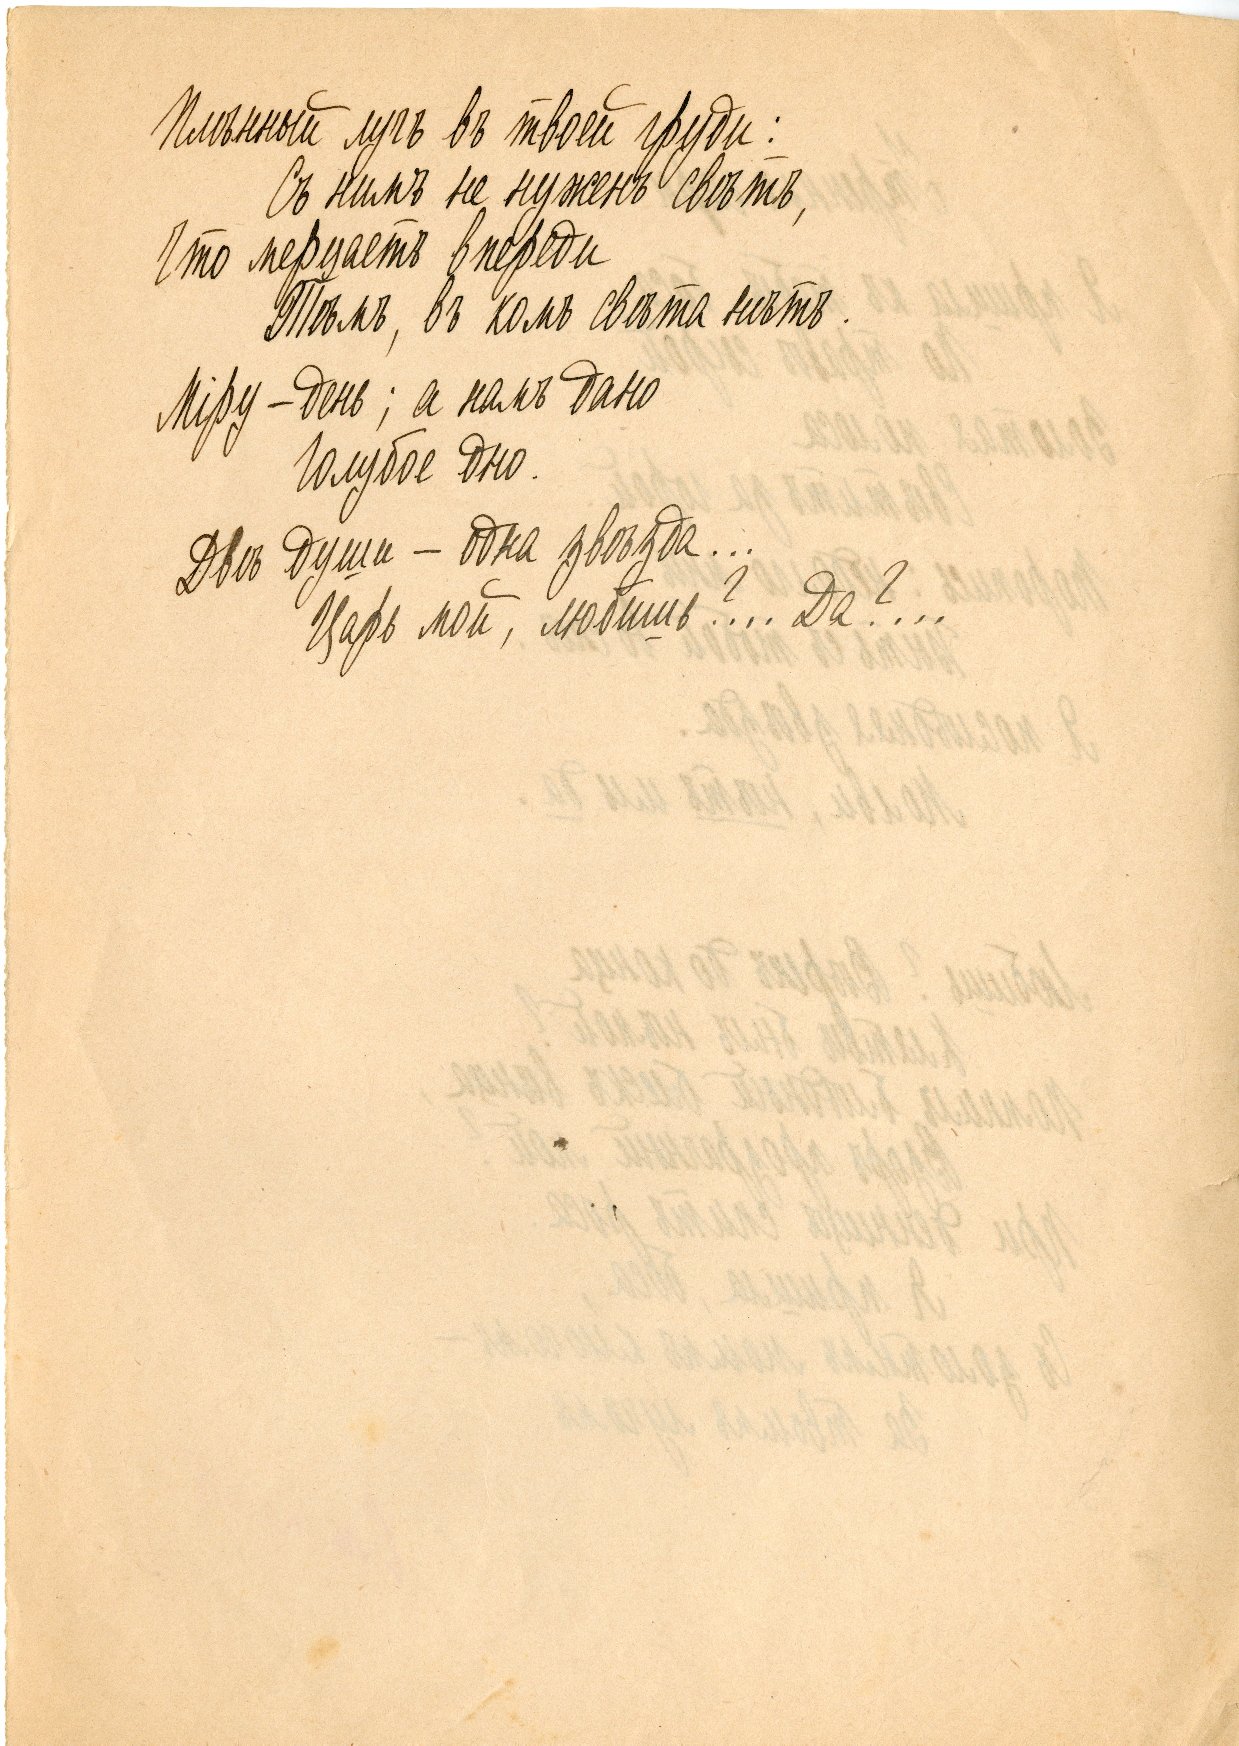 Плѣнный лучъ въ твоей груди:
Съ нимъ не нуженъ свѣтъ,
Что мерцаетъ впереди
Тѣмъ, въ комъ свѣта нѣтъ.
Міру – день; а намъ дано
Голубое дно.
Двѣ души – одна звѣзда...
Царь мой, любишь?... Да?...